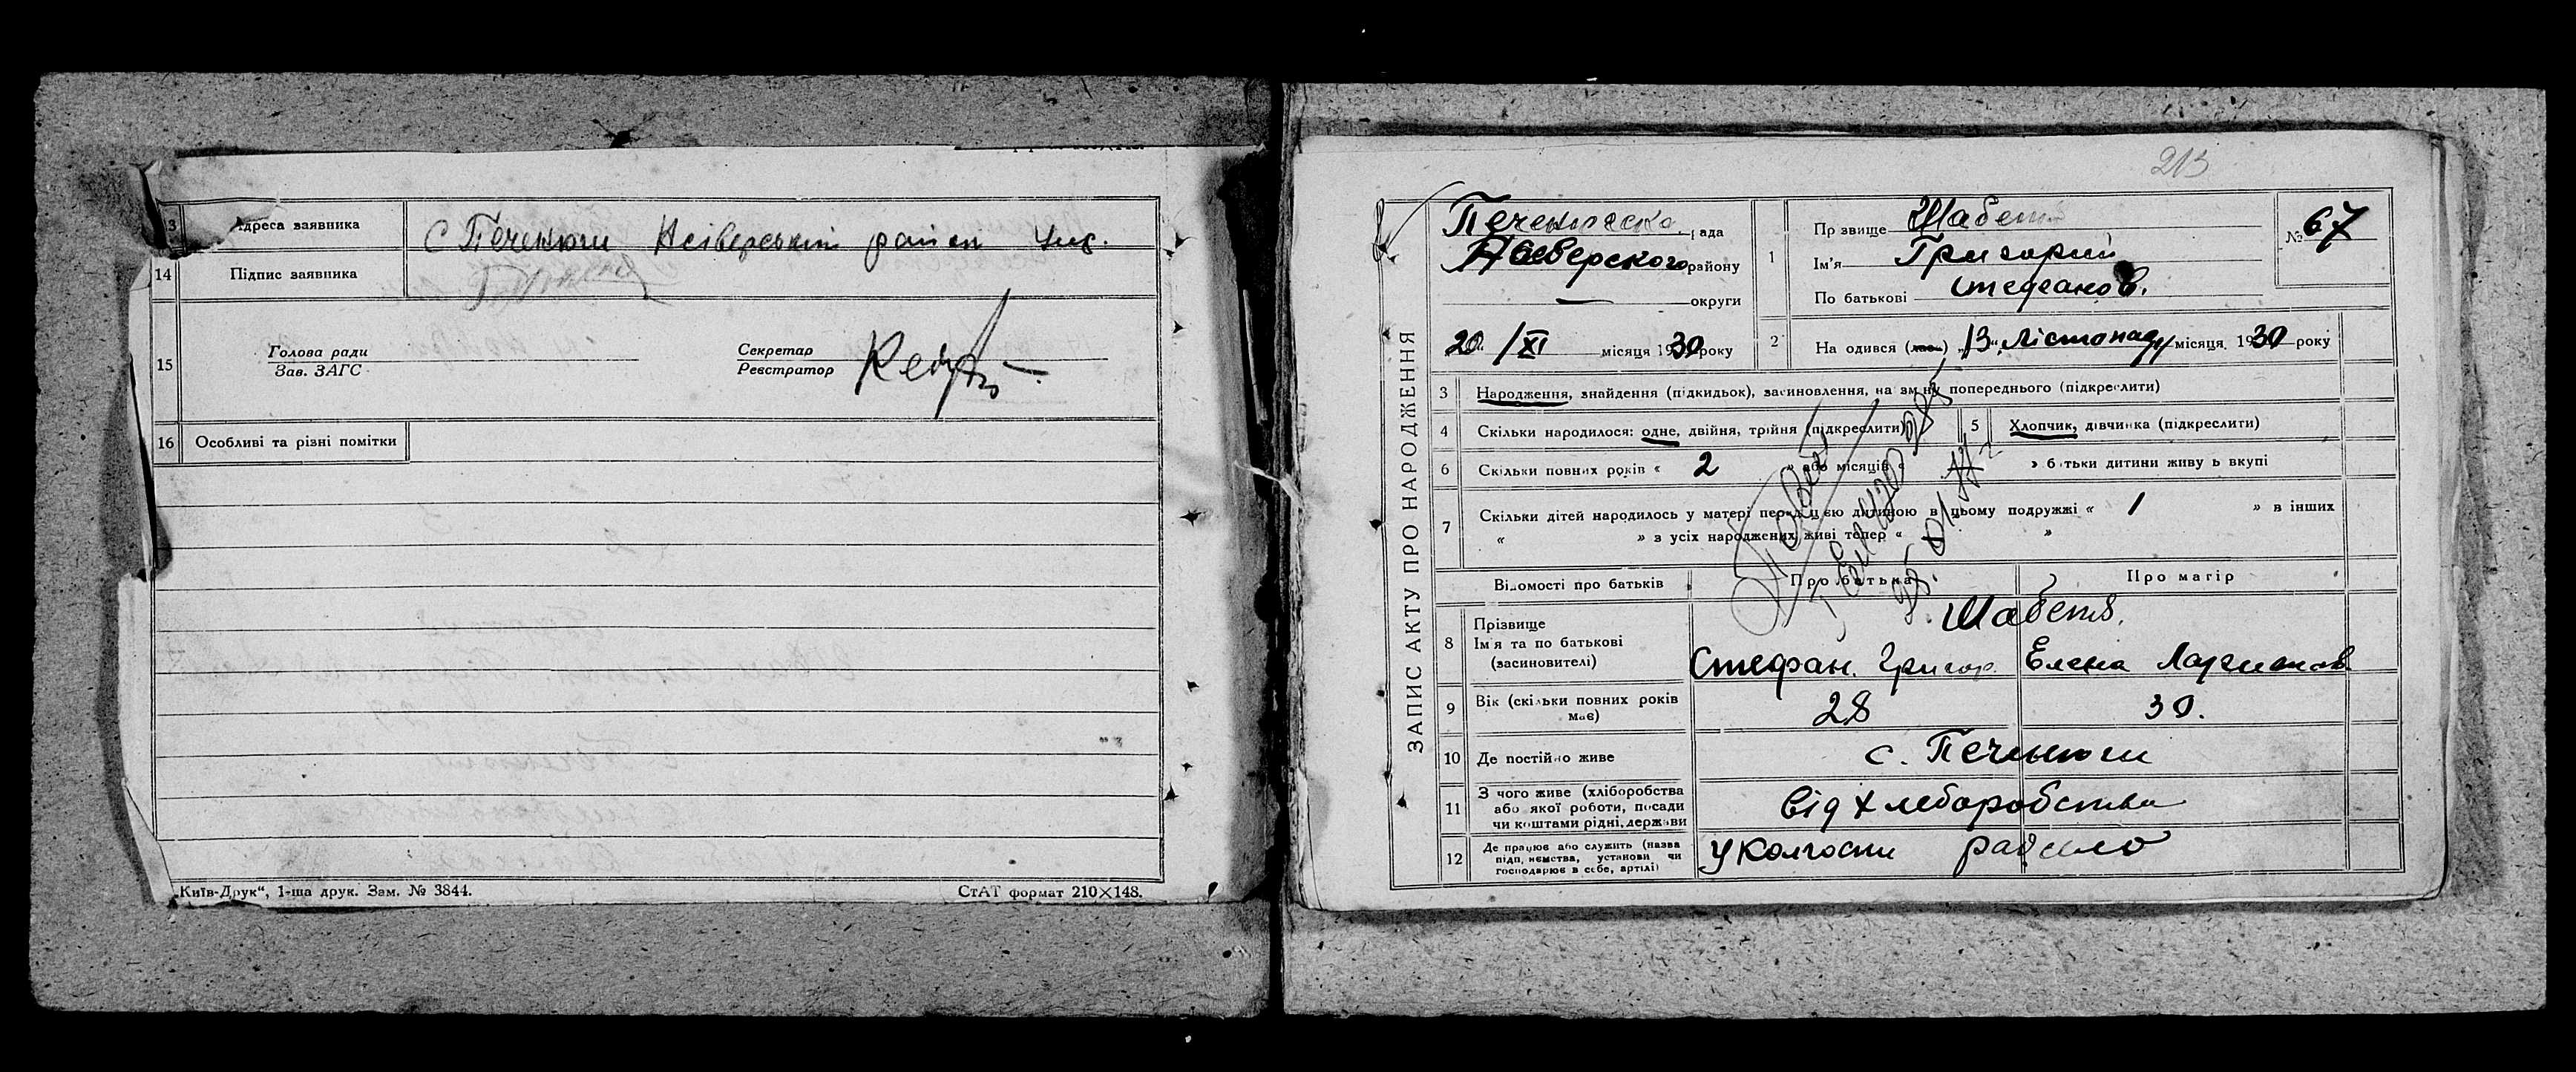 13 Адреса заявника с Печенюги Нсіверський район
14 Підпис заявника
15 Голова ради
Зав. ЗАГС
Секретар
Реєстратор
16 Особливі та різні помітки
„Київ-Друк“, 1-ша друк. Зам. № 3844.
СтАТ формат 210×148.
213
ЗАПИС АКТУ ПРО НАРОДЖЕННЯ
рада
Нсеверского району
— округи
20 /XI місяця 1930 року
1 Прізвище
Ім'я Григорий
По батькові Стефанов.
№ 67
2 На одився (лась) „13“ Лістопаду місяця 1930 року
3 Народження, знайдення (підкидьок), засиновлення, на зміну попереднього (підкреслити)
4 Скільки народилося: одне, двійня, трійня (підкреслити)
5 Хлопчик, дівчинка (підкреслити)
6 Скільки повних років « 2 » або місяців « » батьки дитини живуть вкупі
7 Скільки дітей народилось у матері перед цією дитиною в цьому подружжі « 1 » в інших
« » з усіх народжених живі тепер « »
Відомості про батьків Про батька Про матір
8 Прізвище
Ім'я та по батькові
(засиновителі)
Шабета.
Стефан. Григор. Елена
9 Вік (скільки повних років має) 28 30.
10 Де постійно живе с. Печенюги
11 З чого живе (хліборобства
або якої роботи, посади
чи коштами рідні, держави
від хлеборобства
12 Де працює або служить (назва
підприємства, установи чи
господарює в себе, артілі)
У Колгоспи